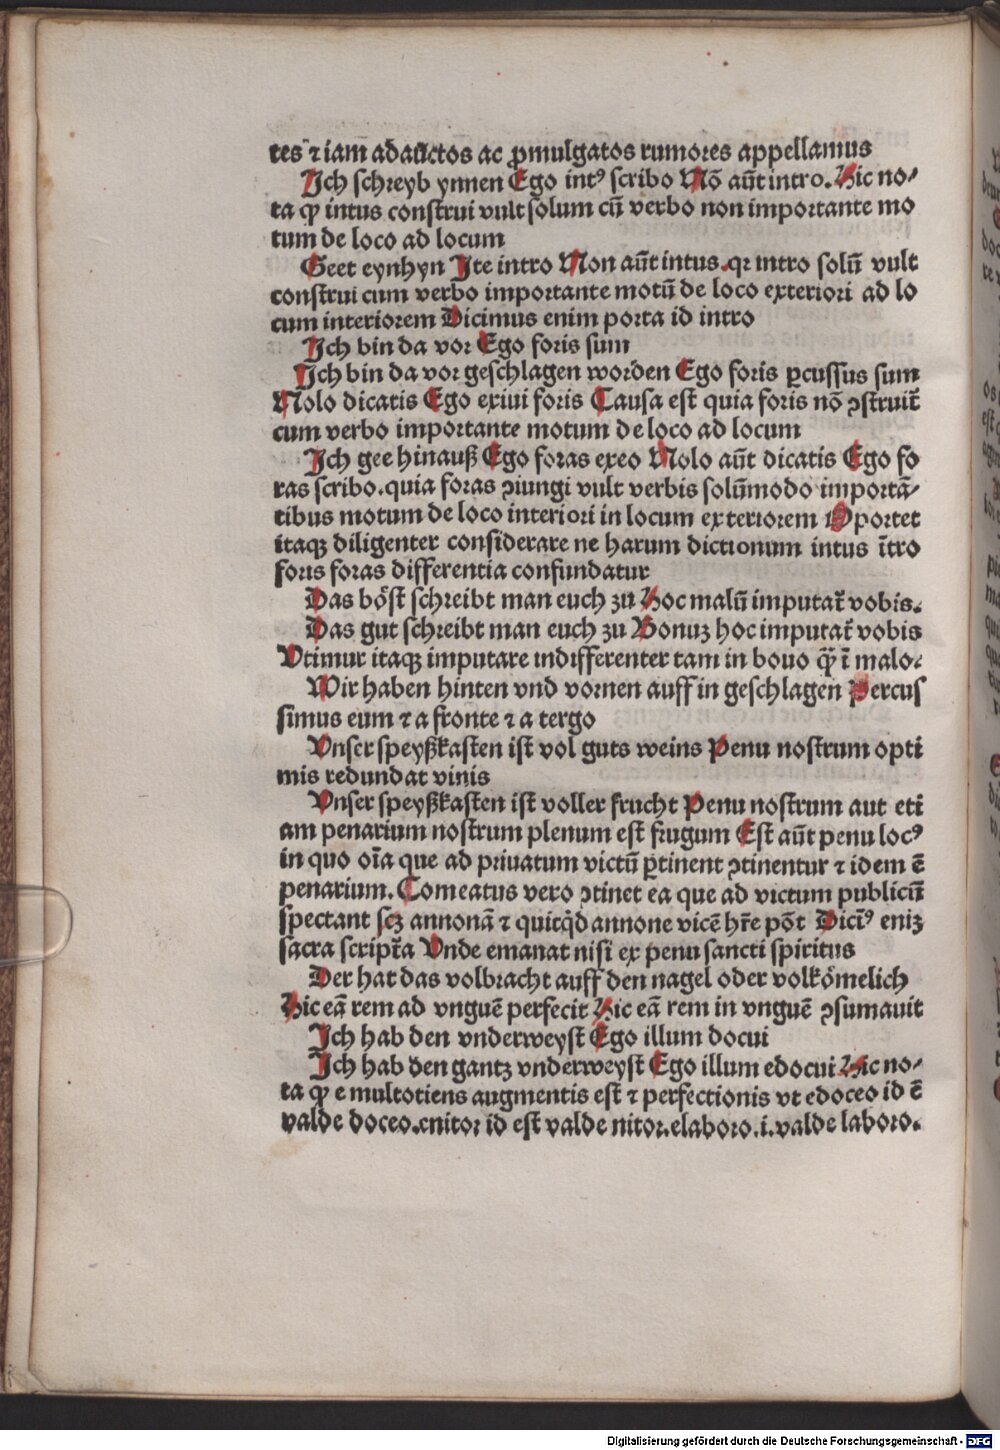 tes ⁊ iam adauctos ac ꝓmulgatos rumores appellamus
Jch schreyb ynnen Ego intꝰ scribo Nō aūt intro. Hic no⸗
ta ꝙ intus construi vult solum cū verbo non importante mo
tum de loco ad locum
Geet eynhyn Jte intro Non aūt intus. qꝛ intro solū vult
construi cum verbo importante motū de loco exteriori ad lo
cum interiorem Dicimus enim porta id intro
Jch bin da vor Ego foris sum
Jch bin da vor geschlagen worden Ego foris ꝑcussus sum
Nolo dicatis Ego exiui foris Causa est quia foris nō ꝯstruit̄
cum verbo importante motum de loco ad locum
Jch gee hinauß Ego foras exeo Nolo aūt dicatis Ego fo
ras scribo. quia foras ꝯiungi vult verbis solūmodo importā⸗
tibus motum de loco interiori in locum exteriorem Oportet
itaqꝫ diligenter considerare ne harum dictionum intus ītro
foris foras differentia confundatur
Das bo̊st schreibt man euch zu Hoc malū imputat̄ vobis.
Das gut schreibt man euch zu Bonuꝫ hoc imputat̄ vobis
Vtimur itaqꝫ imputare indifferenter tam in bouo ꝙ̄ ī malo.
Wir haben hinten vnd vornen auff in geschlagen Percus
simus eum ⁊ a fronte ⁊ a tergo
Vnser speyßkasten ist vol guts weins Penu nostrum opti
mis redundat vinis
Vnser speyßkasten ist voller frucht Penu nostrum aut eti
am penarium nostrum plenum est frugum Est aūt penu locꝰ
in quo oīa que ad priuatum victū ꝑtinent ꝯtinentur ⁊ idem ē
penarium. Comeatus vero ꝯtinet ea que ad victum publicū
spectant scꝫ annonā ⁊ quitqͥd annone vicē hr̄e pōt Dicīꝰ eniꝫ
sacra script̄a Vnde emanat nisi ex penu sancti spiritus
Der hat das volbracht auff den nagel oder volko̊melich
Hic eā rem ad vnguē perfecit Hic eā rem in vnguē ꝯsumauit
Jch hab den vnderweyst Ego illum docui
Jch hab den gantz vnderweyst Ego illum edocui Hic no⸗
ta ꝙ e multotiens augmentis est ⁊ perfectionis vt edoceo id ē
valde doceo. enitor id est valde nitor. elaboro .i. valde laboro.
Digitalisierung gefördert durch die Deutsche Forschungsgemeinschaft - DFG